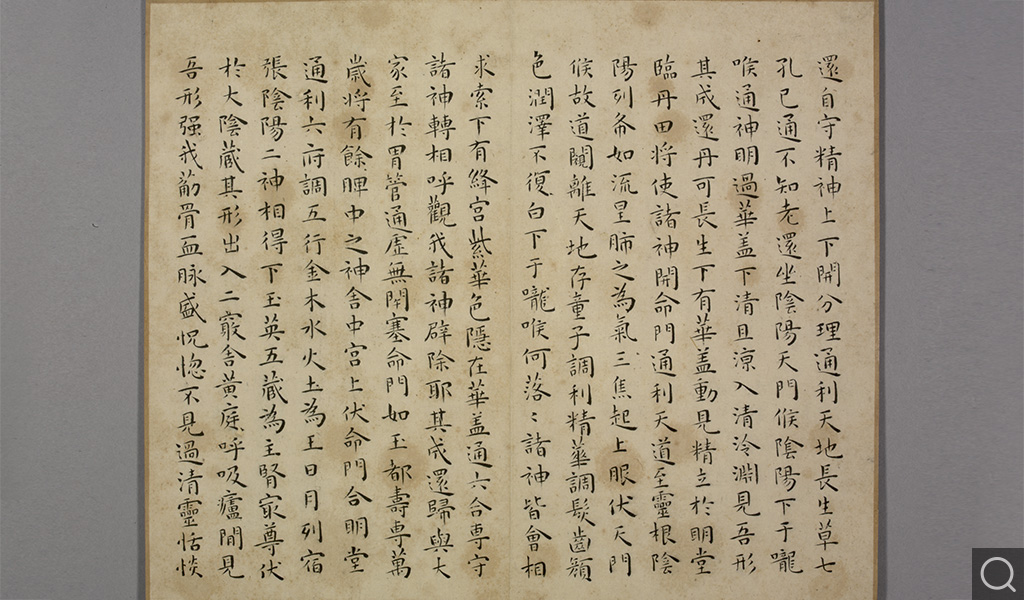 還自守精神上下開分理通利天地長生草七
孔已通不知老還坐陰陽天門候陰陽下于嚨
喉通神明過華盖下清且涼入清泠淵見吾形
其成還丹可長生下有華盖動見精立於明堂
臨丹田將使諸神開命門通利天道至靈根陰
陽列布如流星肺之為氣三焦起上服伏天門
候故道闚離天地存童子調利精華調髮齒顏
色潤澤不復白下于嚨喉何落〻諸神皆會相
求索下有絳宮紫華色隱在華盖通六合専守
諸神轉相呼觀我諸神辟除耶其成還歸與大
家至於胃管通虛無閉塞命門如玉都壽専萬
歲將有餘脾中之神舎中宮上伏命門合明堂
通利六府調五行金木水火土為王日月列宿
張陰陽二神相得下玉英五蔵為主腎冣尊伏
於大陰蔵其形出入二竅舎黄庭呼吸廬間見
吾形强我筋骨血脉盛怳惚不見過清靈恬惔